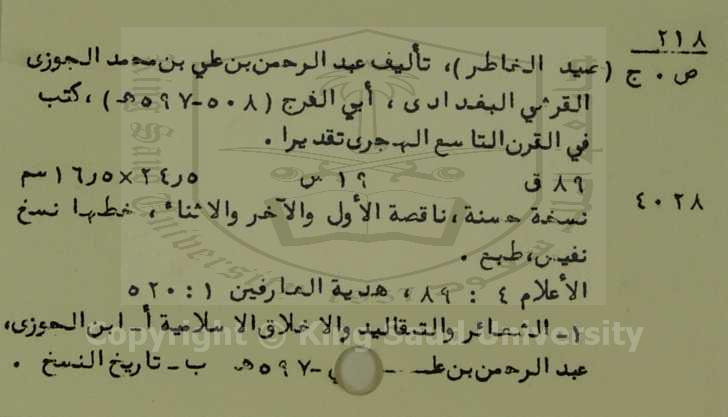 ٢١٨
ص . ج (صيد الخاطر)، تأليف عبد الرحمن بن علي بن محمد الجوزى
القرشي البغدادى ، أبي الفرج (٥٠٨-٥٩٧هـ) ، كتب
في القرن التاسع الهجرى تقديرا .
٨٩ ق ١٩ س ٢٤ر٥×١٦ر٥ سم
٤٠٢٨ نسخة حسنة، ناقصة الأول والآخر والاثناء، خطها نسخ
نفيس، طبع .
الأعلام ٤ : ٨٩ ، هدية العارفين ١ : ٥٢٠
١- الشعائر والتقاليد والاخلاق الاسلامية أ- ابن الجوزى،
عبد الرحمن بن -٥٩٧هـ ب- تاريخ النسخ .
Copyright © King Saud University